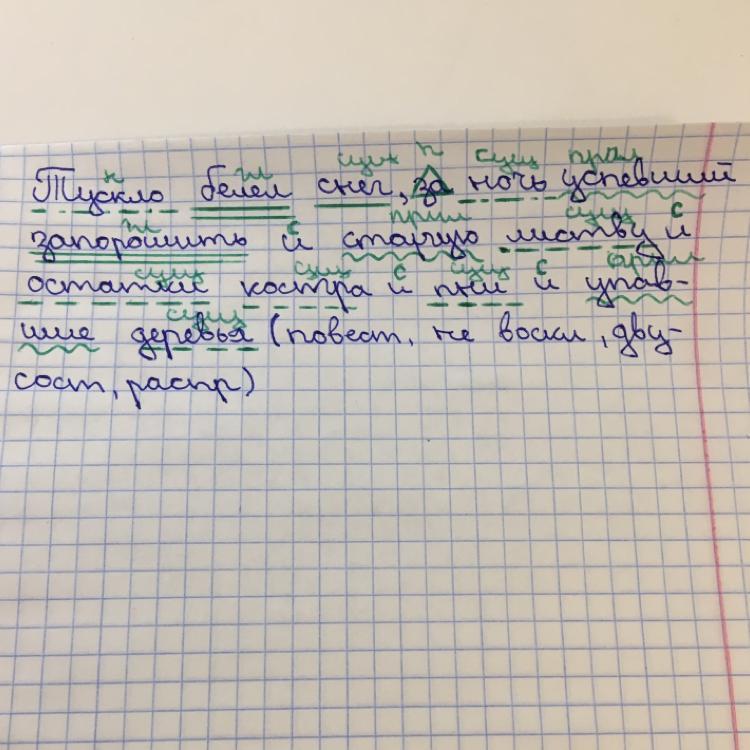 н гл сущ п сущ прил
Тускло белел снег, за ночь успевший
гл с прил сущ с
запорошить и старую листву и
сущ сущ с сущ с прил
остатки костра и пни и упав-
сущ
шие деревья (повест, не воскл, дву-
сост, распр)